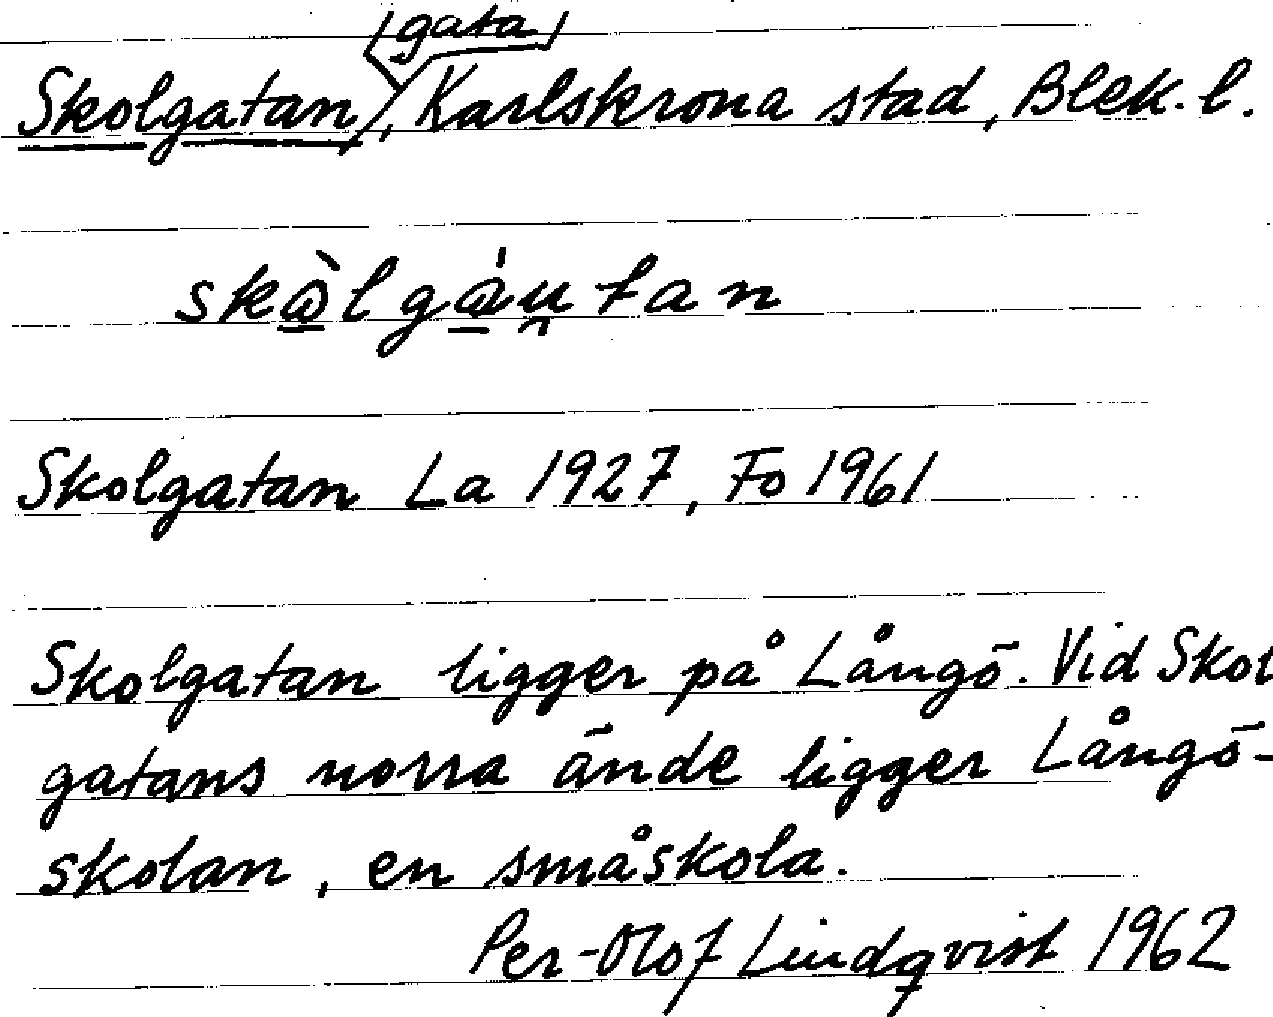 Skolgatan /gata/, Karlskrona stad, Blek. l.
Skolgatan La 1927, Fo 1961
Skolgatan ligger på Långö. Vid Skol
gatans norra ände ligger Långö-
skolan, en småskola.
Per-Olof Lindqvist 1962